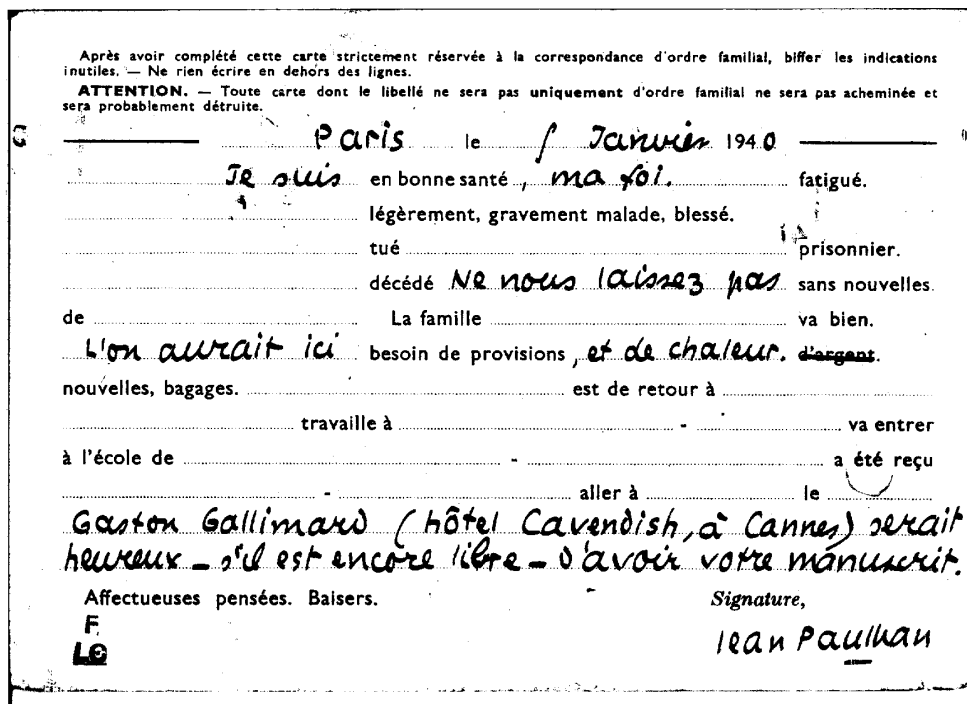 Après avoir complété cette carte strictement réservée à la correspondance d'ordre familial, biffer les indications
inutiles. — Ne rien écrire en dehors des lignes.
ATTENTION. — Toute carte dont le libellé ne sera pas uniquement d'ordre familial ne sera pas acheminée et
sera probablement détruite.
Paris le Janvier 1940
Je suis en bonne santé, ma foi. fatigué.
légèrement, gravement malade, blessé.
tué prisonnier.
décédé Ne nous laissez pas sans nouvelles.
de La famille va bien.
L'on aurait ici besoin de provisions, et de chaleur. d'argent.
nouvelles, bagages. est de retour à
travaille à - va entrer
à l'école de - a été reçu
- aller à le
Gaston Gallimard (hôtel Cavendish, à Cannes) serait
heureux - s'il est encore libre - d'avoir votre manuscrit.
Affectueuses pensées. Baisers. Signature,
F
Jean Paulhan